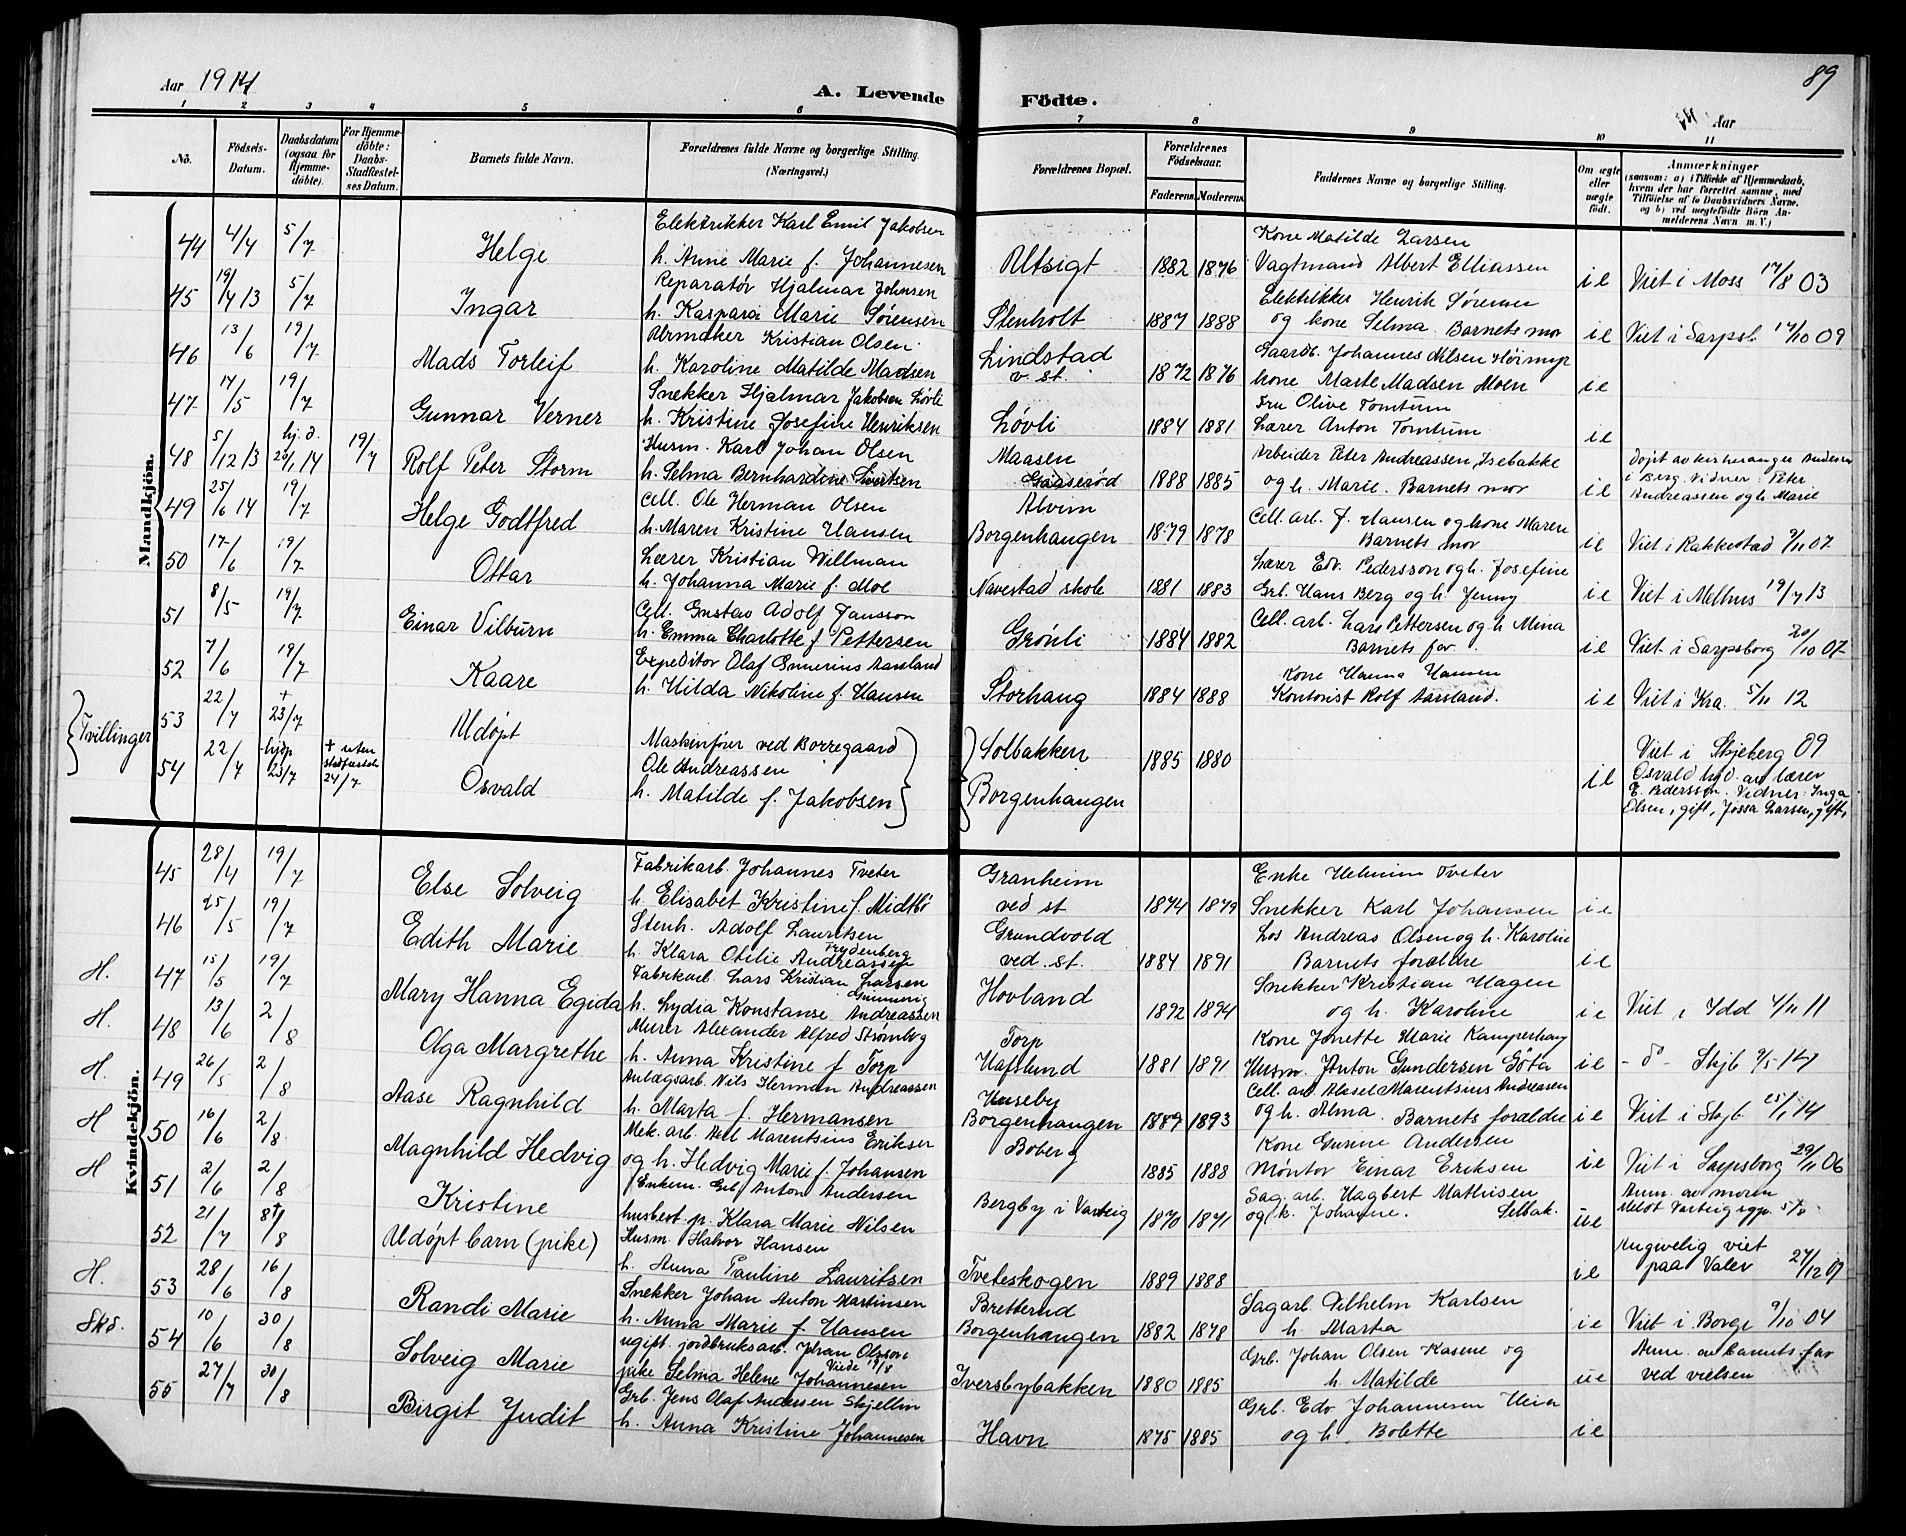 Aar 1914
A. Levende Födte.
89
Aar
1 2 3 4 5 6 7 8 9 10 11
No.
Födsels-Datum.
Daabsdatum (ogsaa for Hjemme-döbte).
For Hjemme-döbte: Daabs-Stadfæstel-ses Datum.
Barnets fulde Navn.
Forældrenes fulde Navne og borgerlige Stilling. (Næringsvei.)
Forældrenes Bopæl.
Forældrenes Födselsaar.
Faderens. Moderens.
Faddernes Navne og borgerlige Stilling.
Om ægte eller uægte født.
Anmærkninger
(saasom: a) i Tilfælde af Hjemmedaab, hvem der har forrettet samme, med Tilföielse af to Daabsvidners Navne. og b) ved uægtefödte Börn An-melderens Navn m. V.)
Mandkjön.
44 4/4 5/7 Helge
Elektrikker Karl Emil Jakobsen
h. Anne Marie f. Johannesen
Utsigt 1882 1876
Kone Matilde Larsen
Vagtmand Albert Elliassen
i e Viet i Moss 17/8 03
45 19/4 13 5/7 Ingar
Reparatør Hjalmar Johnsen
h. Kaspara Marie Sørensen
Stenholt 1887 1888
Elektrikker Henrik Sørensen
og kone Selma. Barnets mor
i e Viet i Sarpsb. 17/10 09
46 13/6 19/7 Mads Torleif
Urmaker Kristian Olsen
h. Karoline Matilde Madsen
Lindstad
v. st. 1872 1876
Gaardb. Johannes Nilsen Høimyr
kone Marte Madsen Moen
i e
47 14/5 19/7 Gunnar Verner
Snekker Hjalmar Jakobsen Løvli
h. Kristine Josefine Henriksen
Løvli 1884 1881
Fru Olive Tomtum
Lærer Anton Tomtum
i e
48 5/12 13 hj. d. 20/1 14 19/7 Rolf Peter Storm
Husm. Karl Johan Olsen
h. Selma Bernhardine Sivertsen
Maasen
Gaaserød 1888 1885
Arbeider Peter Andreassen, Isebakke
og h. Marie. Barnets mor
i e
Døpt av kirkesanger Andersen
i Berg. Vidner: Peter
Andreassen og h. Marie
49 25/6 14 19/7 Helge Godtfred
Cell. Ole Herman Olsen
h. Maren Kristine Hansen
Alvim
Borgenhaugen 1879 1878
Cell. arb. J. Hansen og kone Maren
Barnets mor
i e Viet i Rakkestad 9/11 07
50 17/6 19/7 Ottar
Lærer Kristian Willman
h. Johanna Marie f. Moe
Navestad skole 1881 1883
Lærer Edv. Pedersson og h. Josefine
Grb. Hans Berg og h. Jenny
i e Viet i Melhus 19/7 13
51 8/5 19/7 Einar Vilburn
Cell. Gustav Adolf Jansson
h. Emma Charlotte f. Pettersen
Grønli 1884 1882
Cell. arb. Lars Pettersen og h Mina
Barnets far.
i e Viet i Sarpsborg 20/10 07
52 7/6 19/7 Kaare
Expeditør Olaf Gunerius Aarsland
h. Hilda Nikoline f. Hansen
Storhaug 1884 1888
Kone Hanna Hansen
Kontorist Rolf Aarsland.
i e Viet i Kra. 5/11 12
Tvillinger
53 22/7 + 23/7 Udøpt
54 22/7 hjdp 23/7 + uten stadfæstelse 24/7 Osvald
Maskinfører ved Borregaard
Ole Andreassen
h. Matilde f. Jakobsen
Solbakken
Borgenhaugen
1885 1880
i e
Viet i Skjeberg 09
Osvald hjd. av lærer
E. Pedersson. Vidner: Inga
Olsen, gift, Jossa Larsen, gift,
Kvindekjön.
45 28/4 19/7 Else Solveig
Fabrikarb. Johannes Tveter
h. Elisabet Kristine f. Midtbø
Granheim
ved st 1874 1879
Enke Helmine Tveter
Snekker Karl Johansen
i e
46 25/5 19/7 Edith Marie
Stenh. Adolf Lauritsen
Frydenberg
h. Klara Otilie Andreassen
Grundvold
ved. st. 1884 1891
Los Andreas Olsen og h. Karoline
Barnets forældre
i e
H. 47 15/5 19/7 Mary Hanna Egida
Fabrikarb. Lars Kristian Larsen
h. Lydia Konstanse Andreassen
Hovland 1892 1894
Snekker Kristian Hagen
og h. Karoline
i e Viet i Idd 4/11 11
H. 48 13/6 2/8 Olga Margrethe
Murer Alexander Alfred Strømberg
h. Anna Kristine f Torp
Torp
Hafslund 1881 1891
Kone Jonette Marie Kamperhaug
Husm. Anton Gundersen Göta
i e - do - Skjb 9/5 14
H. 49 26/5 2/8 Aase Ragnhild
Anlægsarb. Nils Herman Andreassen
h. Marta f. Hermansen
Huseby
Borgenhaugen 1889 1893
Cell. arb Aksel Marentsius Andreassen
og h. Alma. Barnets forældre
i e Viet i Skjb 25/1 14
H 50 16/6 2/8 Magnhild Hedvig
Mek. arb. Axel Marentsius Eriksen
og h. Hedvig Marie f. Johansen
Boberg
1885 1888
Kone Gusine Andersen
Montør Einar Eriksen
i e Viet i Sarpsborg 29/11 06
H 51 2/6 2/8 Kristine
Enkem. Grb. Anton Andersen
husbest. p. Klara Marie Nilsen
Bergby i Varteig 1870 1871
Sag. arb. Hagbert Mathisen
og k. Johanne. Selbak.
u e
Anm. av moren
Meldt Varteig sgp. 5/8
52 21/7 8+/8 Udøpt barn (pike)
Husm. Halvor Hansen
h. Anna Pauline Lauritsen
Tveteskogen 1889 1888
i e
Angivelig viet
paa Valer 27/12 07
H. 53 28/6 16/8 Randi Marie
Snekker Johan Anton Martinsen
h. Anna Marie f. Hansen
Bretterud
Borgenhaugen 1882 1878
Sagarb. Vilhelm Karlsen
h. Marta
i e Viet i Borge 9/10 04
Skö. 54 10/6 30/8 Solveig Marie
ugift jordbruksarb. Johan Olsson
Viede 19/8
pike Selma Helene Johannesen
Iversbybakken 1880 1885
Grb. Johan Olsen Kasene og
h. Matilde
u e
Anm. av barnets far
ved vielsen
55 27/7 30/8 Birgit Judit
Grb. Jens Olaf Andersen Skjellin
h. Anna Kristine Johannesen
Havn 1875 1885
Grb. Edv Johannesen Heia
og h. Bolette
i e